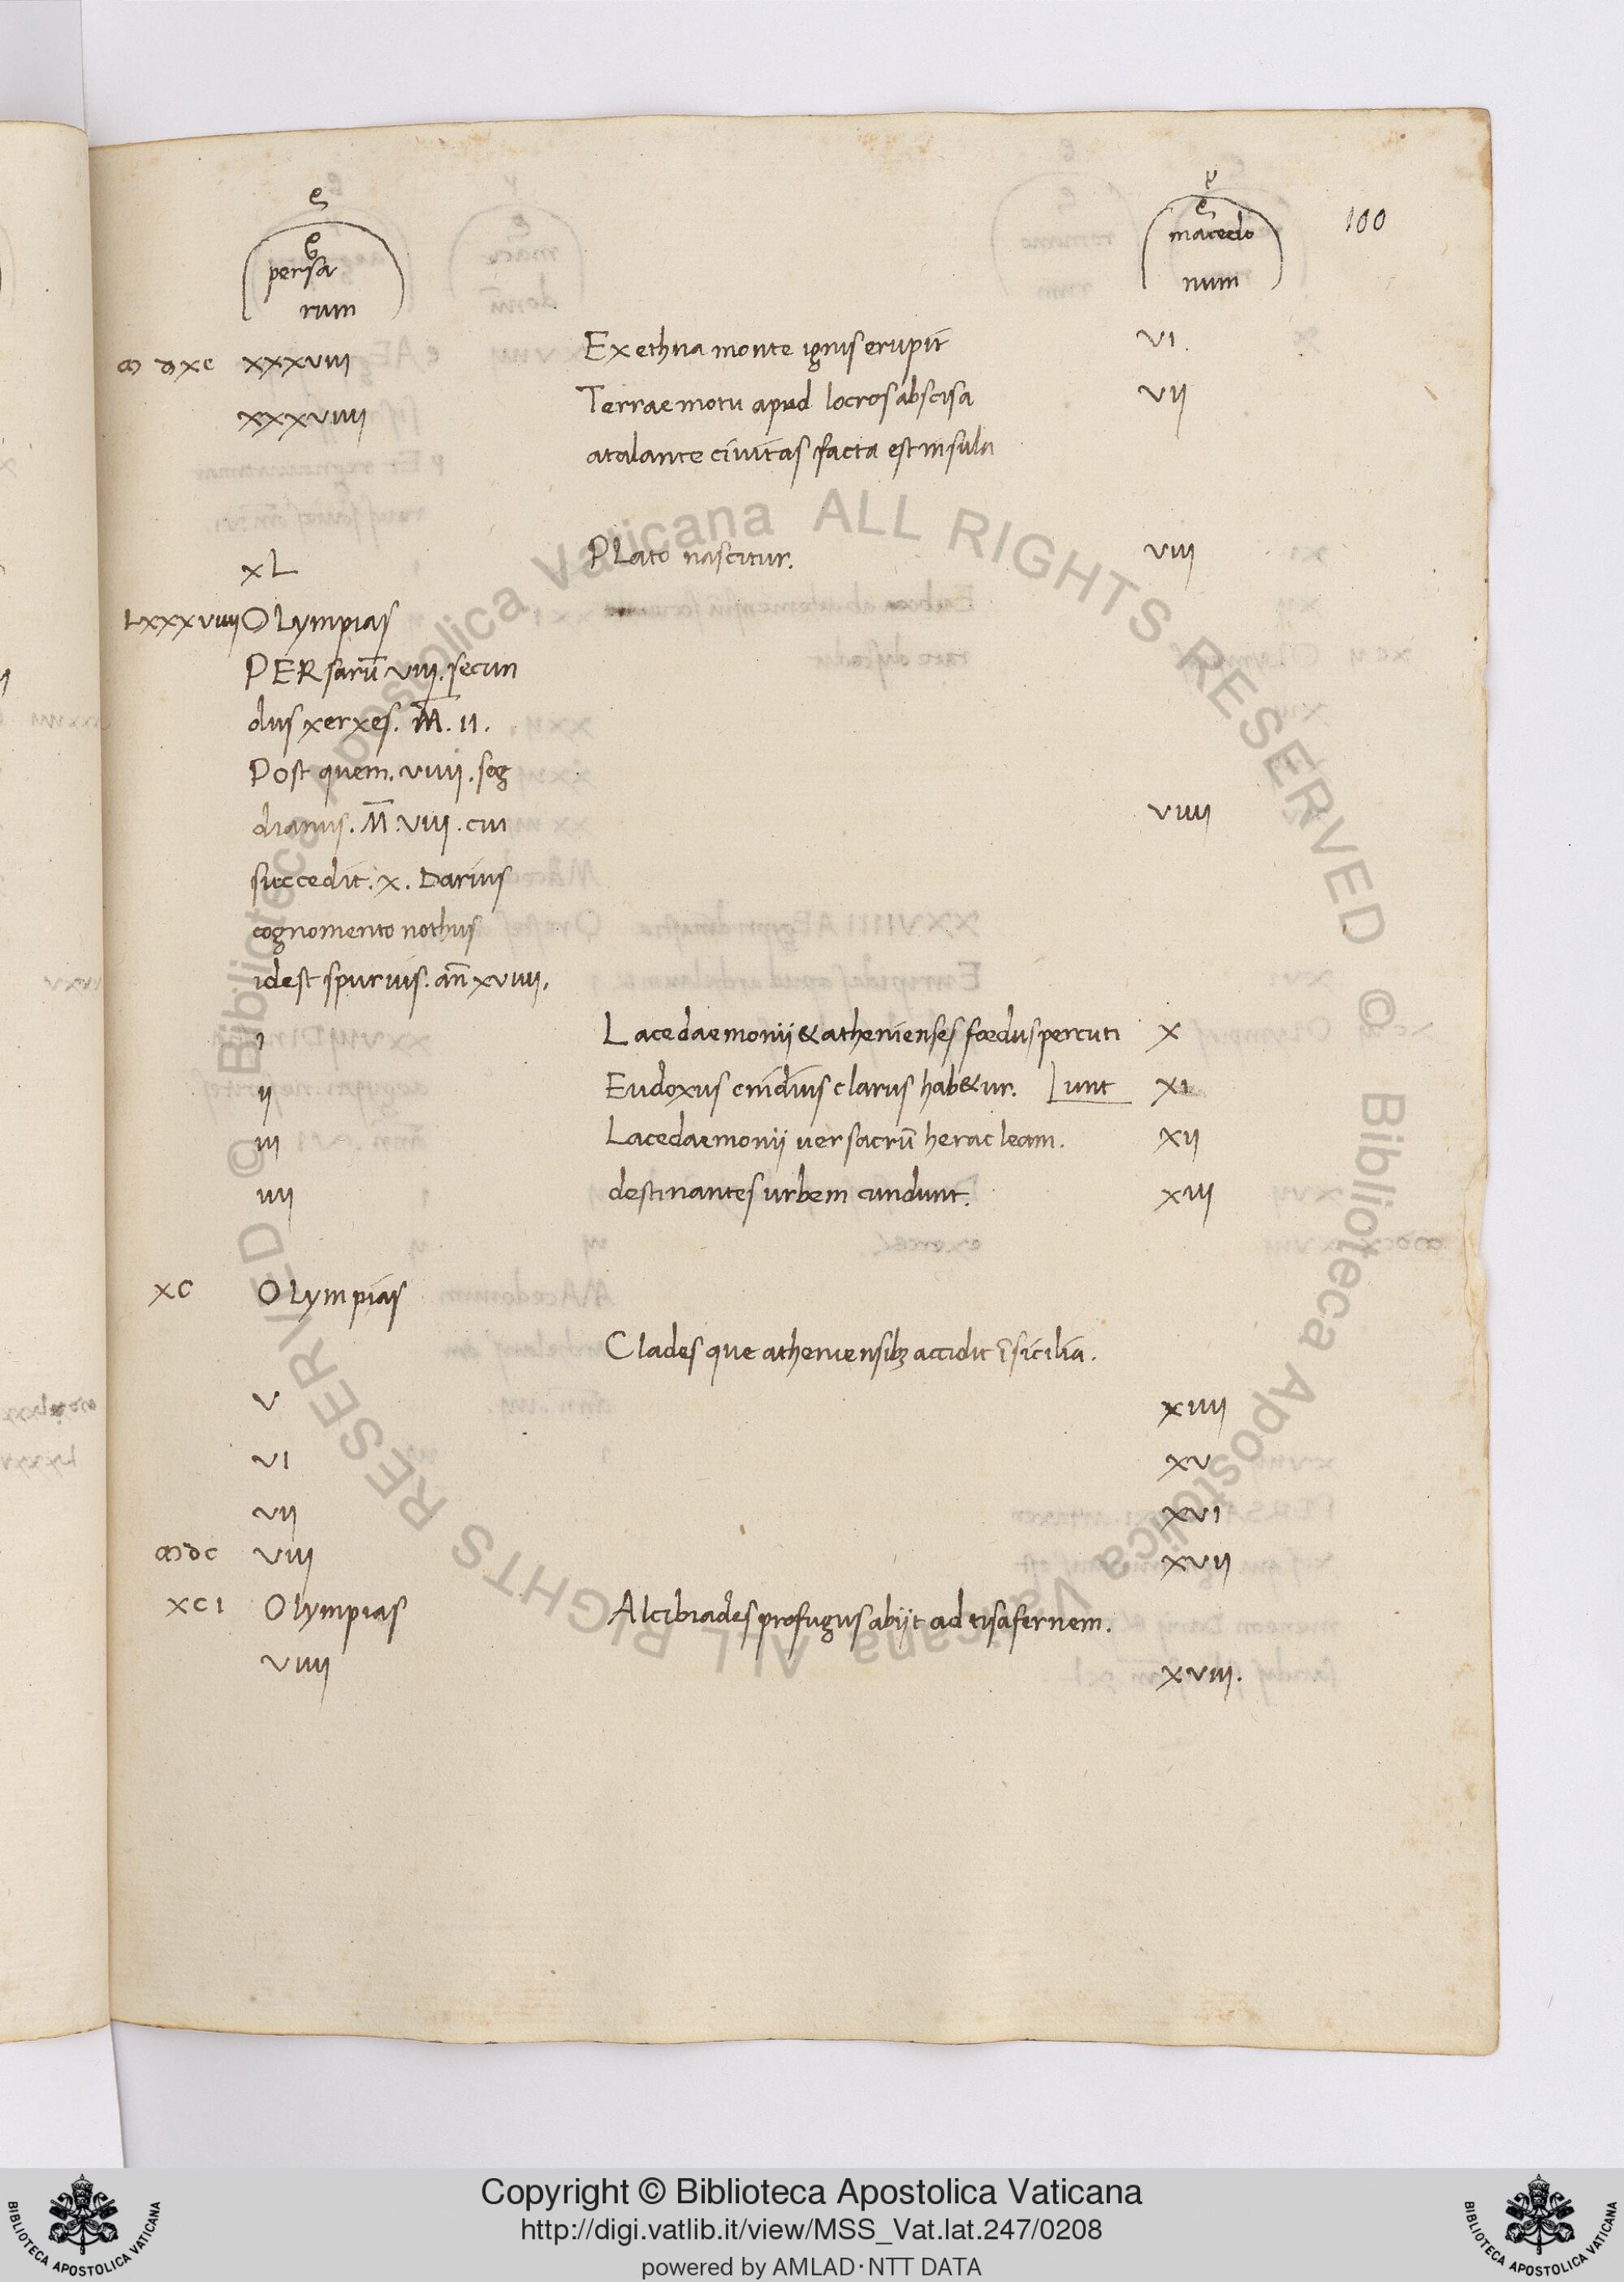 100
ę
ę
persa
rum
ę
macedo
num
ꝏ ꝺxc xxxviij Ex ethna monte ignis erupit vi.
xxxviiij Terraemotu apud locros abscisa vij
atalante civitas facta est insula
xL PLato nascitur. viij
Lxxxviiij OLympias
PERsarū viij. secun
dus xerxes. M̅. ii.
Post quem. viiij. sog
dianus. M̅. viij. cui viiij
succedit. x. Darius
cognomento nothus
idest spurius. añ xviiij.
i Lacedaemonij & athenienses fœdus percuti x
ij Eudoxus cnidius clarus hab&ur. [unt xi
iij Lacedaemonij uer sacrū heracleam. xij
iiij destinantes urbem cundunt. xiij
xc OLympias
Clades que atheniensibꝫ accidit ī sicilia.
v xiiij
vi xv
vij xvi
ꝏꝺc viij xvij
xci Olympias Alcibiades profugus abijt ad tisafernem.
viiij xviij.
© Biblioteca Apostolica Vaticana ALL RIGHTS RESERVED
© Biblioteca Apostolica Vaticana ALL RIGHTS RESERVED
BIBLIOTECA APOSTOLICA VATICANA
Copyright © Biblioteca Apostolica Vaticana
http://digi.vatlib.it/view/MSS_Vat.lat.247/0208
powered by AMLAD·NTT DATA
BIBLIOTECA APOSTOLICA VATICANA